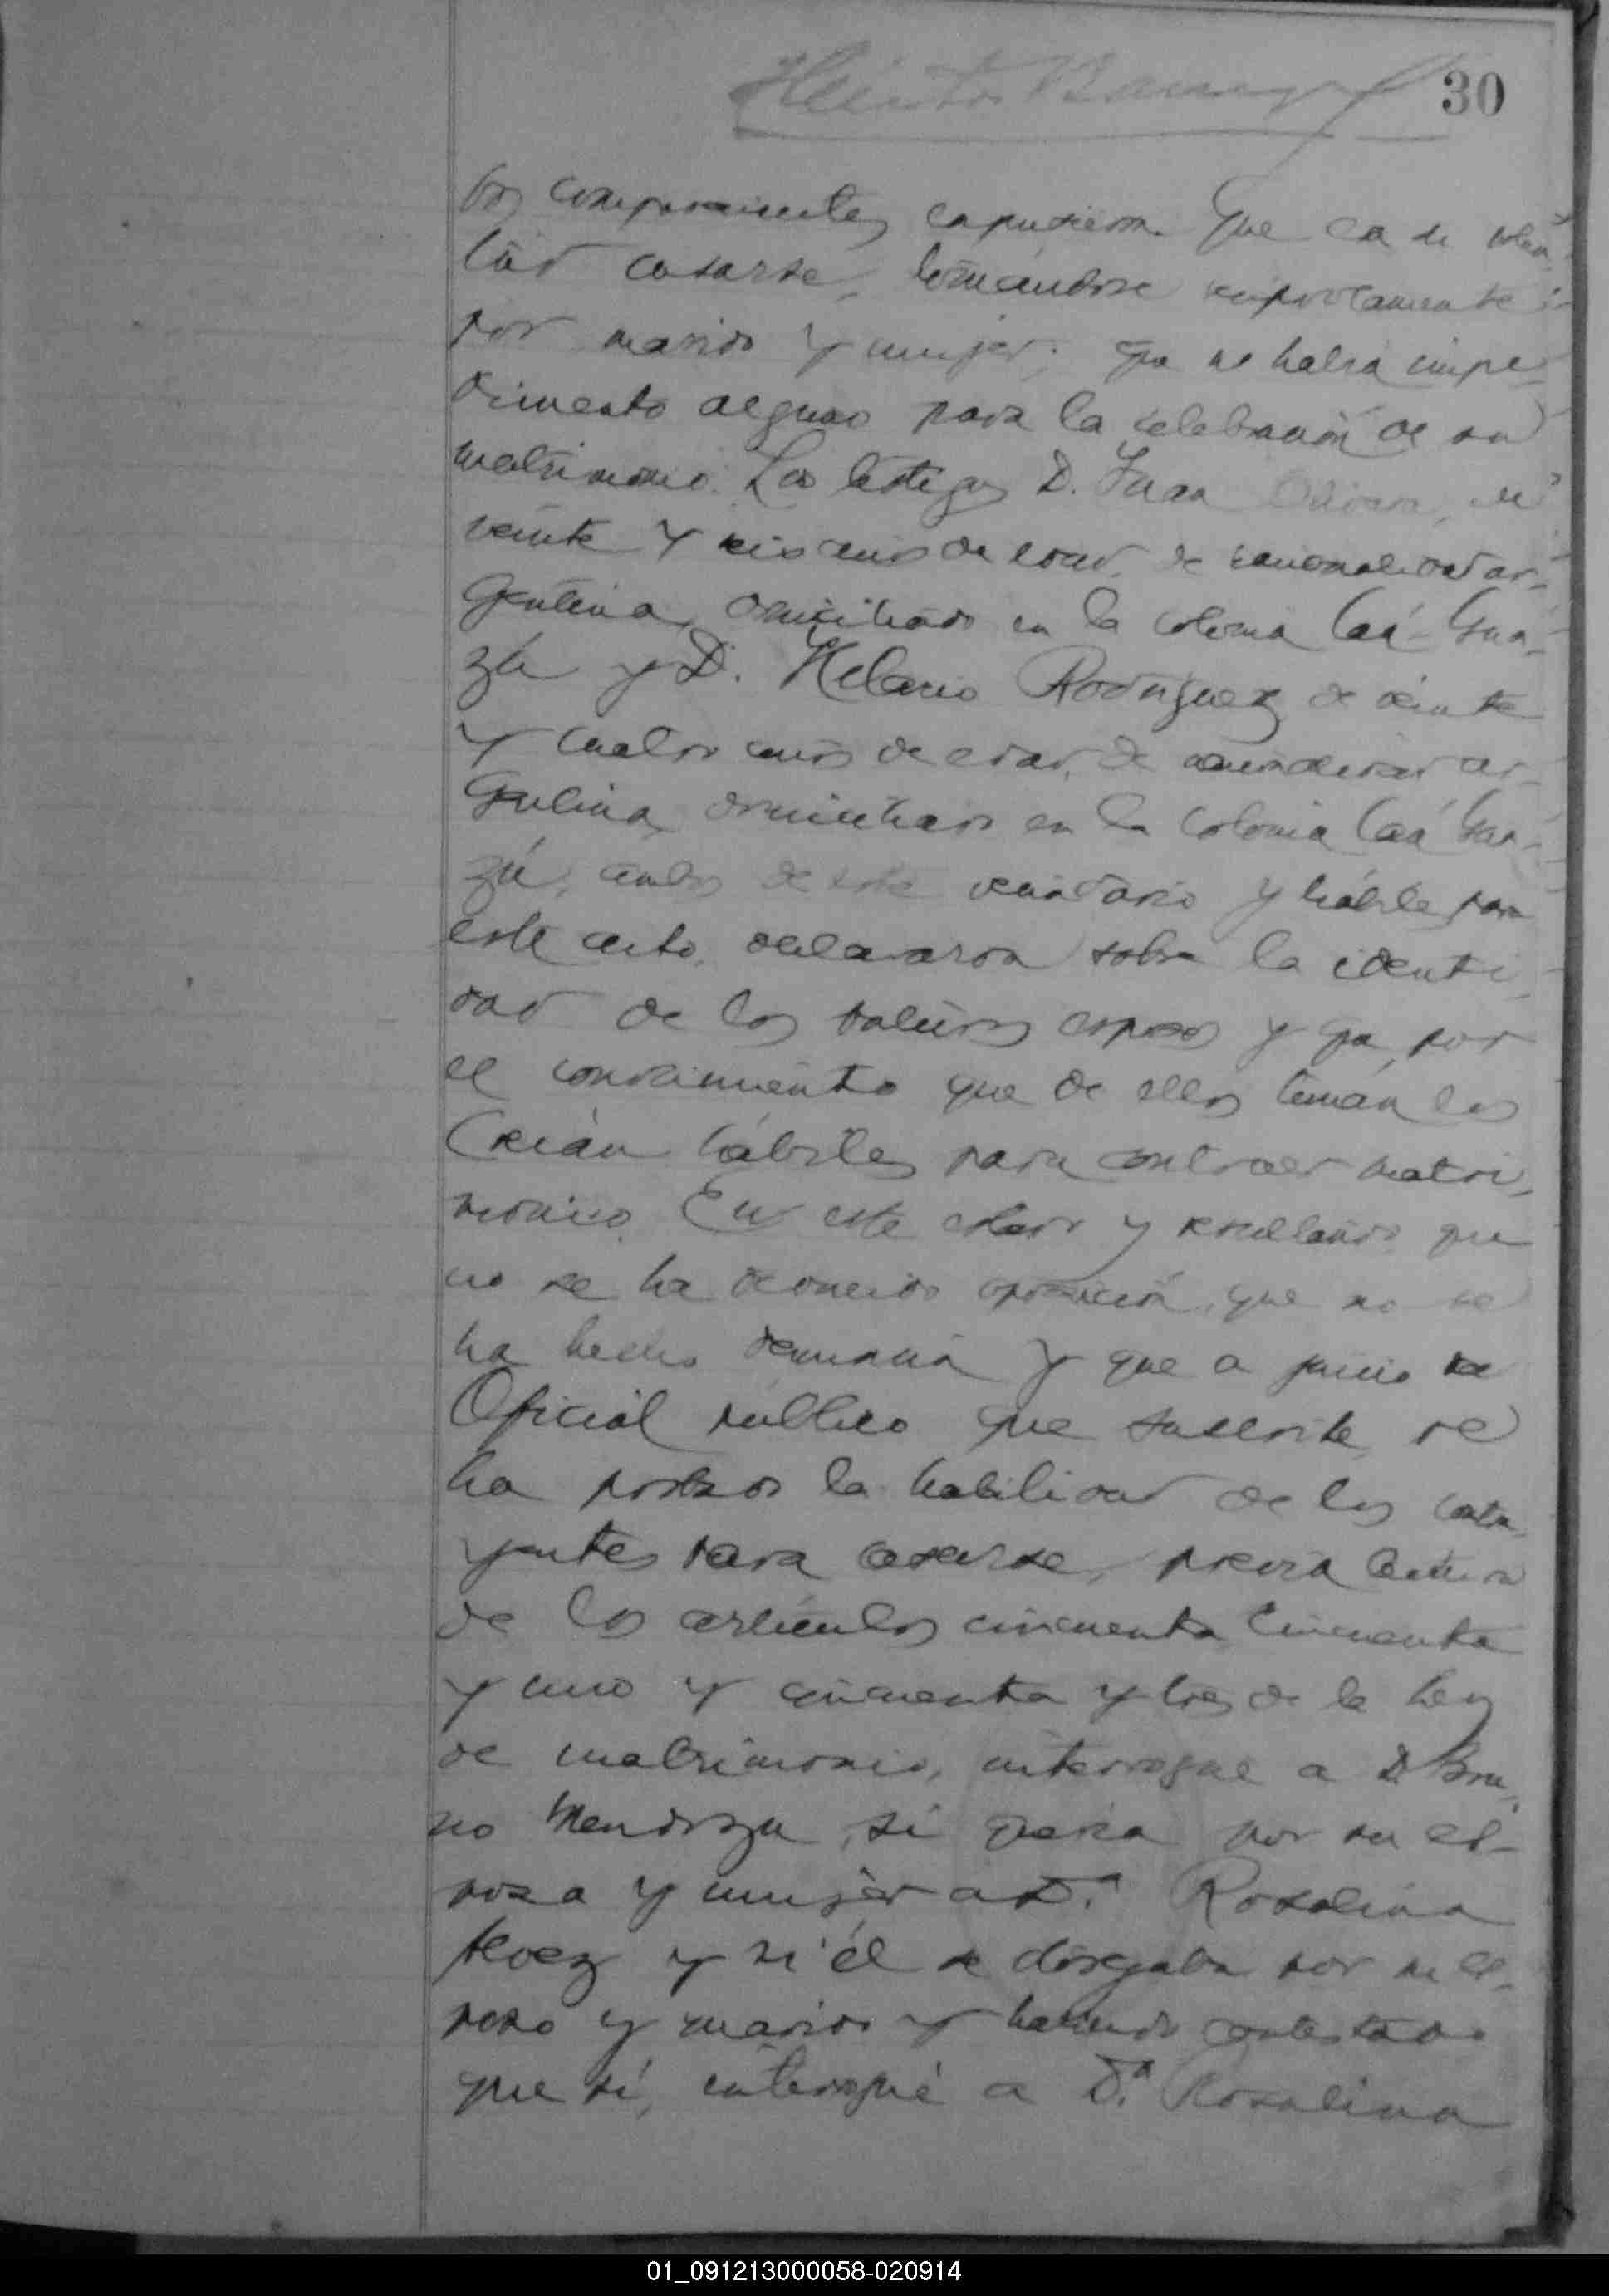 30
los comparecientes expusieron: Que era su volun-
tad casarse, tomándose recíprocamente
por marido y mujer; que no había impe-
dimento alguno para la celebración de su
matrimonio. Los testigos D. Juan de
veinte y seis años de edad, de nacionalidad ar-
gentina, domiciliado en la colonia Caá-Gua-
zú y D. Hilario Rodriguez de veinte
y cuatro años de edad, de nacionalidad ar-
gentina, domiciliado en la colonia Caá Gua-
zú, ambos de este vecindario y hábiles para
este acto, declararon sobre la identi-
dad de los futuros esposos y que por
el conocimiento que de ellos tenían los
creían hábiles para contraer matri-
monio. En este estado y resultando que
no se ha deducido oposición, que no se
ha hecho denuncia y que a juicio del
Oficial público que suscribe, se
ha probado la habilidad de los contra-
yentes para casarse, previa lectura
de los artículos cincuenta cincuenta
y uno y cincuenta y tres de la ley
de matrimonio, interrogué a D. Bru-
no Mendoza, si quería por su es-
posa y mujer a D.ª Rosalina
y si él se otorgaba por su es-
poso y marido y habiendo contestado
que sí, interrogué a D.ª Rosalina
01_091213000058-020914